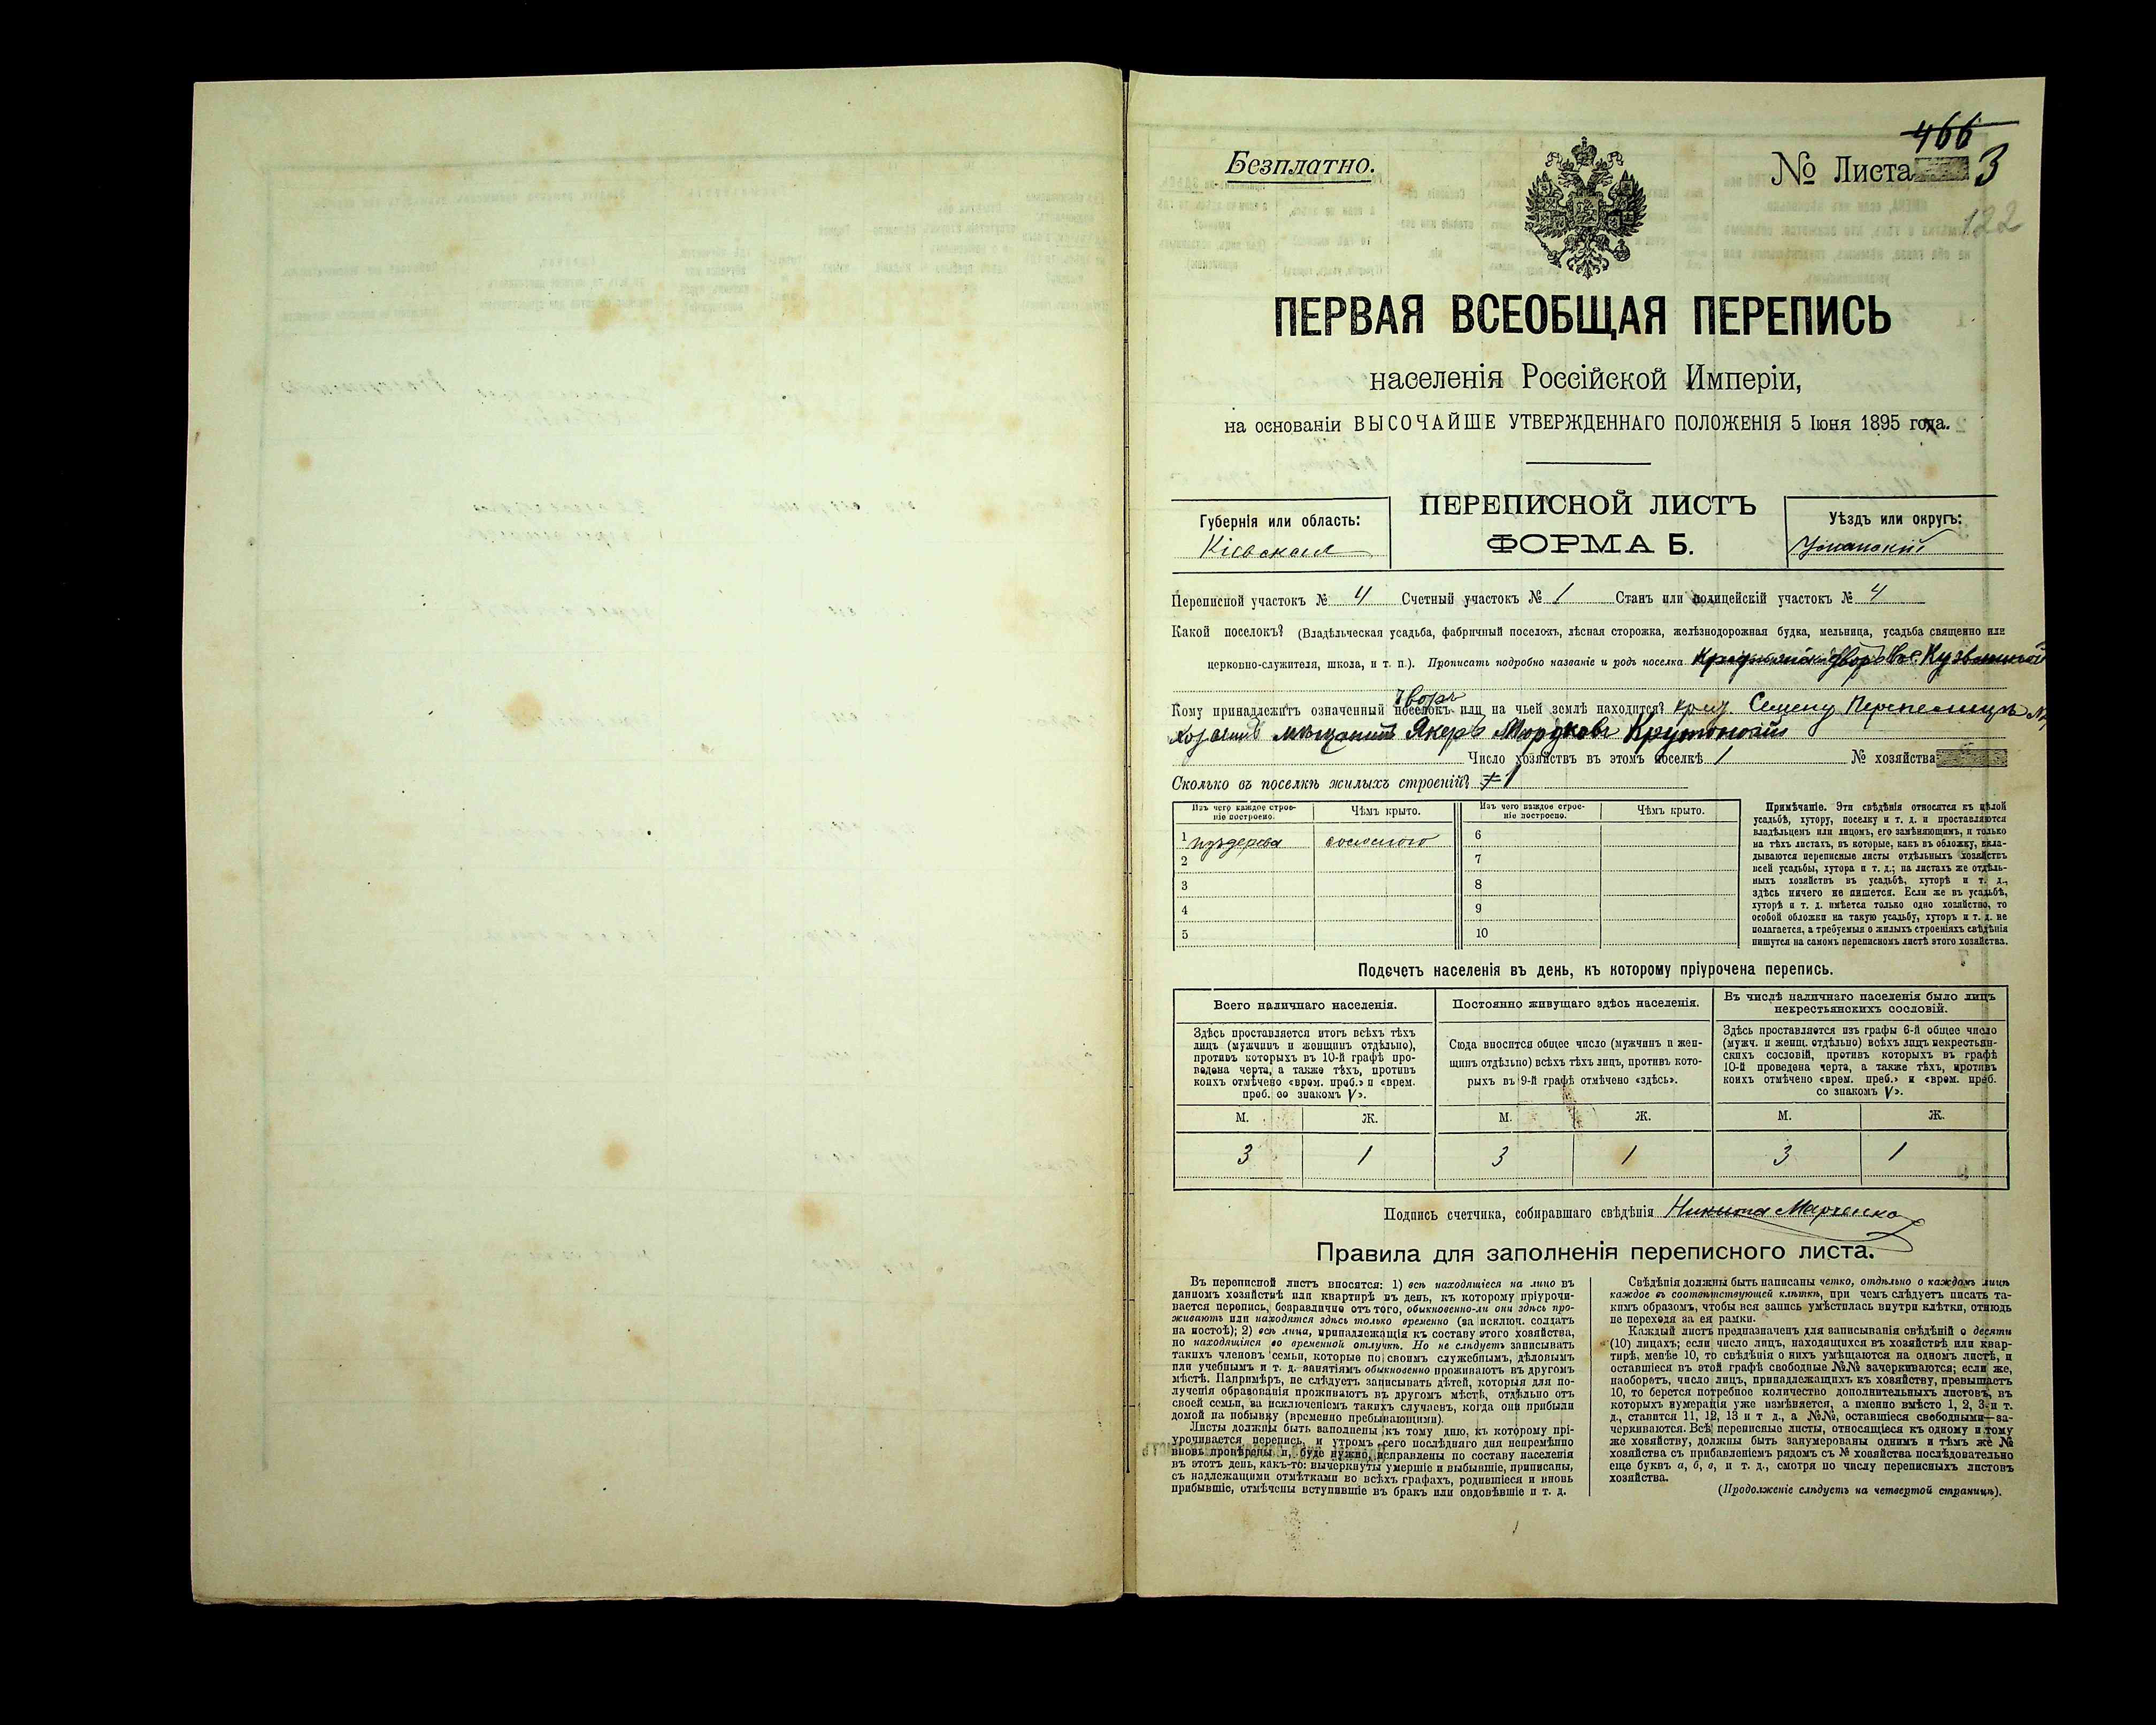 466
Безплатно.
№ Листа 3
122
ПЕРВАЯ ВСЕОБЩАЯ ПЕРЕПИСЬ
населенія Россійской Имперіи,
на основаніи ВЫСОЧАЙШЕ УТВЕРЖДЕННАГО ПОЛОЖЕНІЯ 5 Іюня 1895 года.
ПЕРЕПИСНОЙ ЛИСТЪ
ФОРМА Б.
Губернія или область:
Кіевская
Уѣздъ или округъ:
Уманскій
Переписной участокъ № 4 Счетный участокъ № 1 Станъ или полицейскій участокъ № 4
Какой поселокъ? (Владѣльческая усадьба, фабричный поселокъ, лѣсная сторожка, желѣзнодорожная будка, мельница, усадьба священно или
церковно-служителя, школа, и т. п.). Прописать подробно названіе и родъ поселка
дворъ
Кому принадлежитъ означенный поселокъ или на чьей землѣ находится? Семену
хозяинъ мѣщанинъ Мордковъ
Число хозяйствъ въ этомъ поселкѣ 1 № хозяйства
Сколько въ поселкѣ жилыхъ строеній? 1
Изъ чего каждое строеніе построено. Чѣмъ крыто. Изъ чего каждое строеніе построено. Чѣмъ крыто.
1 изъ дерева соломою 6
2 7
3 8
4 9
5 10
Примѣчаніе. Эти свѣдѣнія относятся къ цѣлой
усадьбѣ, хутору, поселку и т. д. и проставляются
владѣльцемъ или лицомъ, его замѣняющимъ, и только
на тѣхъ листахъ, въ которые, какъ въ обложку, вкла-
дываются переписные листы отдѣльныхъ хозяйствъ
всей усадьбы, хутора и т. д.; на листахъ же отдѣль-
ныхъ хозяйствъ въ усадьбѣ, хуторѣ и т. д.,
здѣсь ничего не пишется. Если же въ усадьбѣ,
хуторѣ и т. д. имѣется только одно хозяйство, то
особой обложки на такую усадьбу, хуторъ и т. д. не
полагается, а требуемыя о жилыхъ строеніяхъ свѣдѣнія
пишутся на самомъ переписномъ листѣ этого хозяйства.
Подсчетъ населенія въ день, къ которому пріурочена перепись.
Всего наличнаго населенія.
Здѣсь проставляется итогъ всѣхъ тѣхъ
лицъ (мужчинъ и женщинъ отдѣльно),
противъ которыхъ въ 10-й графѣ про-
ведена черта, а также тѣхъ, противъ
коихъ отмѣчено «врем. преб.» и «врем.
преб. со знакомъ V».
Постоянно живущаго здѣсь населенія.
Сюда вносится общее число (мужчинъ и жен-
щинъ отдѣльно) всѣхъ тѣхъ лицъ, противъ кото-
рыхъ въ 9-й графѣ отмѣчено «здѣсь».
Въ числѣ наличнаго населенія было лицъ
некрестьянскихъ сословій.
Здѣсь проставляется изъ графы 6-й общее число
(мужч. и женщ. отдѣльно) всѣхъ лицъ некрестьян-
скихъ сословій, противъ которыхъ въ графѣ
10-й проведена черта, а также тѣхъ, противъ
коихъ отмѣчено «врем. преб.» и «врем. преб.
со знакомъ V».
М. Ж. М. Ж. М. Ж.
3 1 3 1 3 1
Подпись счетчика, собиравшаго свѣдѣнія Никита Марченко
Правила для заполненія переписного листа.
Въ переписной листъ вносятся: 1) всѣ находящіеся на лицо въ
данномъ хозяйствѣ или квартирѣ въ день, къ которому пріурочи-
вается перепись, безразлично отъ того, обыкновенно-ли они здѣсь про-
живаютъ или находятся здѣсь только временно (за исключ. солдатъ
на постоѣ); 2) всѣ лица, принадлежащія къ составу этого хозяйства,
но находящіяся во временной отлучкѣ. Но не слѣдуетъ записывать
такихъ членовъ семьи, которые по своимъ служебнымъ, дѣловымъ
или учебнымъ и т. д. занятіямъ обыкновенно проживаютъ въ другомъ
мѣстѣ. Напримѣръ, не слѣдуетъ записывать дѣтей, которыя для по-
лученія образованія проживаютъ въ другомъ мѣстѣ, отдѣльно отъ
своей семьи, за исключеніемъ такихъ случаевъ, когда они прибыли
домой на побывку (временно пребывающими).
Листы должны быть заполнены къ тому дню, къ которому прі-
урочивается перепись, и утромъ сего послѣдняго дня непремѣнно
вновь провѣрены и, буде нужно, исправлены по составу населенія
въ этотъ день, какъ-то: вычеркнуты умершіе и выбывшіе, приписаны,
съ надлежащими отмѣтками во всѣхъ графахъ, родившіеся и вновь
прибывшіе, отмѣчены вступившіе въ бракъ или овдовѣвшіе и т. д.
Свѣдѣнія должны быть написаны четко, отдѣльно о каждомъ лицѣ
каждое въ соотвѣтствующей клѣткѣ, при чемъ слѣдуетъ писать та-
кимъ образомъ, чтобы вся запись умѣстилась внутри клѣтки, отнюдь
не переходя за ея рамки.
Каждый листъ предназначенъ для записыванія свѣдѣній о десяти
(10) лицахъ; если число лицъ, находящихся въ хозяйствѣ или квар-
тирѣ, менѣе 10, то свѣдѣнія о нихъ умѣщаются на одномъ листѣ, и
оставшіеся въ этой графѣ свободные №№ зачеркиваются; если же,
наоборотъ, число лицъ, принадлежащихъ къ хозяйству, превышаетъ
10, то берется потребное количество дополнительныхъ листовъ, въ
которыхъ нумерація уже измѣняется, а именно вмѣсто 1, 2, 3 и т.
д., ставится 11, 12, 13 и т д., а №№, оставшіеся свободными—за-
черкиваются. Всѣ переписные листы, относящіеся къ одному и тому
же хозяйству, должны быть занумерованы однимъ и тѣмъ же №
хозяйства съ прибавленіемъ рядомъ съ № хозяйства послѣдовательно
еще буквъ а, б, в, и т. д., смотря по числу переписныхъ листовъ
хозяйства.
(Продолженіе слѣдуетъ на четвертой страницѣ).